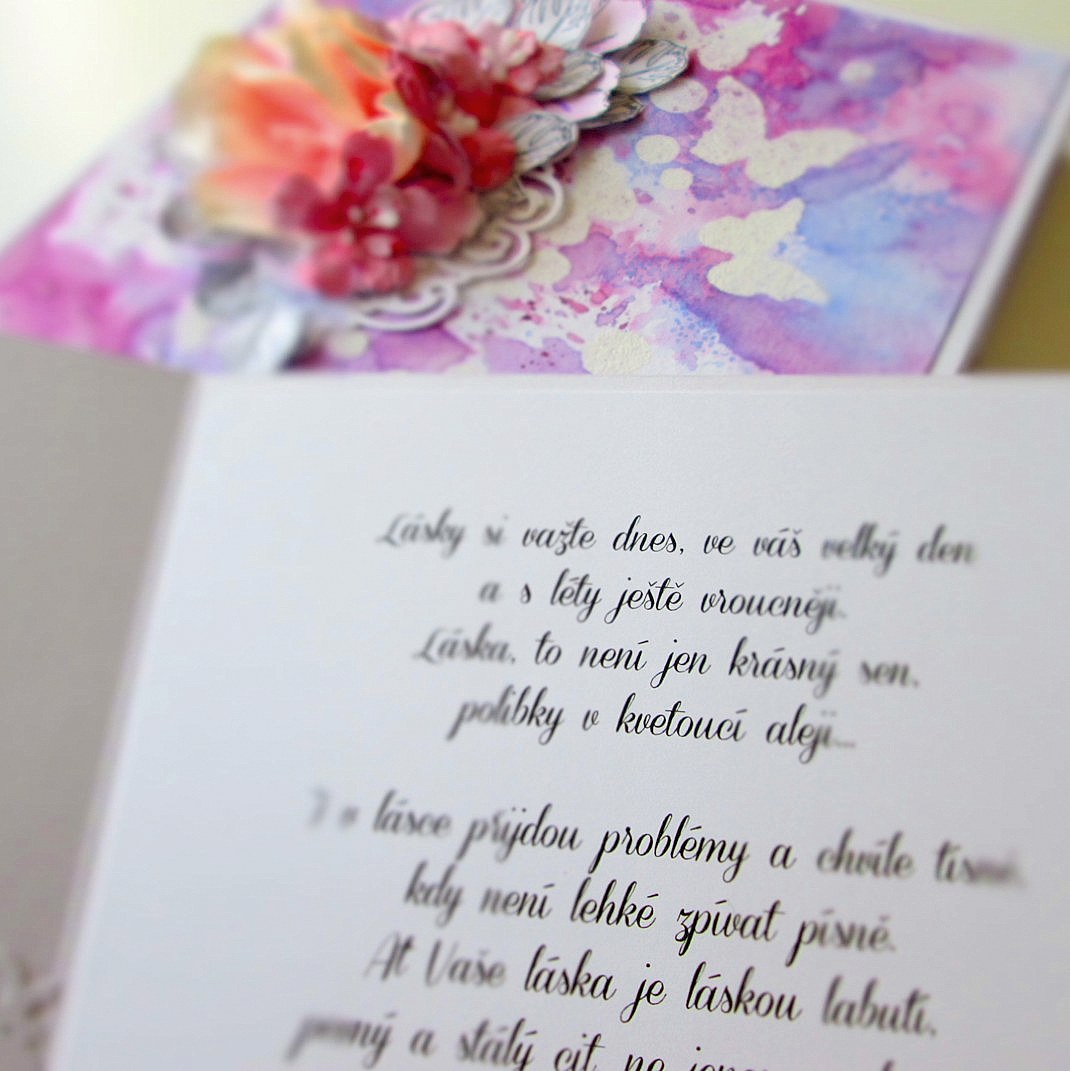 Lásky si važte dnes, ve váš velký den
a s léty ještě vroucněji.
Láska, to není jen krásný sen,
polibky v kvetoucí aleji...
lásce přijdou problémy a chvíle tísně,
kdy není lehké zpívat písně.
Ať Vaše láska je láskou labutí,
pevný a stálý cit, ne jenom